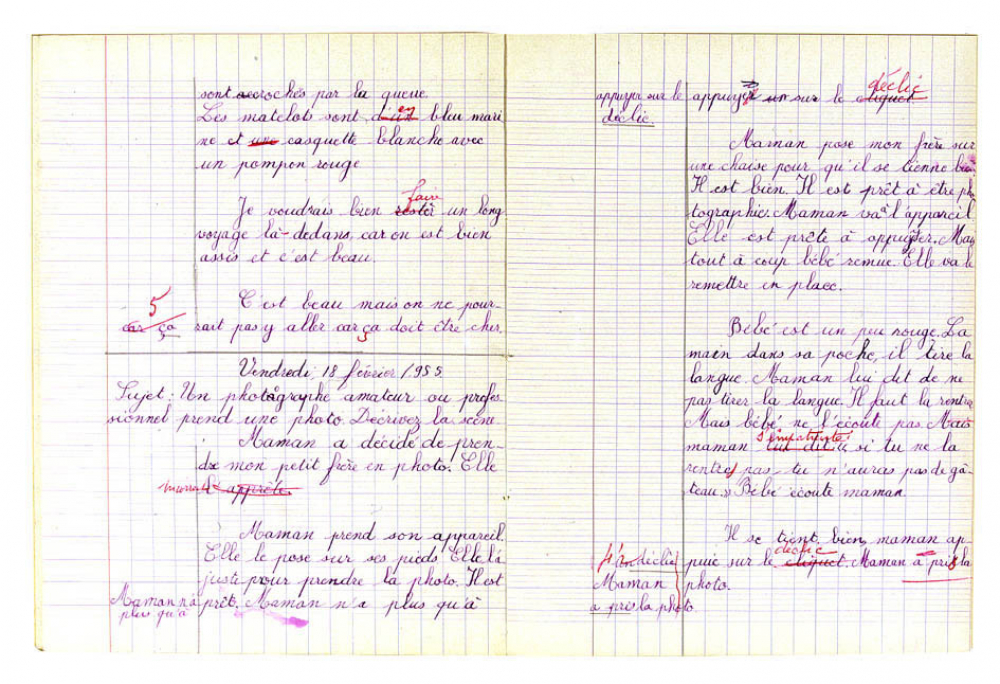 sont accrochés par la queue.
Les matelots sont d'un en bleu mari
ne et une casquette blanche avec
un pompon rouge
faire
Je voudrais bien rester un long
voyage là-dedans, car on est bien
assis et c'est beau.
5
C'est beau mais on ne pour-
car ça rait pas y aller car ça doit être cher.
Vendredi 18 février 1955
Sujet : Un photographe amateur ou profes
sionnel prend une photo. Décrivez la scène.
Maman a décidé de pren-
dre mon petit frère en photo. Elle
s'apprête.
Maman prend son appareil.
Elle le pose sur ses pieds. Elle l'a
juste pour prendre la photo. Il est
Maman n'a prêt. Maman n'a plus qu'à
plus qu'à
déclic
appuyer sur le appuyer un sur le cliquet
déclic.
Maman pose mon frère sur
une chaise pour qu'il se tienne bien
Il est bien. Il est prêt à être pho
tographié. Maman va à l'appareil.
Elle est prête à appuyer. Mais
tout à coup bébé remue. Elle va le
remettre en place.
Bébé est un peu rouge. La
main dans sa poche, il tire la
langue. Maman lui dit de ne
pas tirer la langue. Il faut la rentrer
Mais bébé ne l'écoute pas. Mais
s'impatiente :
maman lui dit « si tu ne la
rentres pas tu n'auras pas de gâ-
teau. » Bébé écoute maman.
Il se tient bien, maman ap-
déclic
déclic puie sur le cliquet. Maman a pris la
Maman photo.
a pris la photo